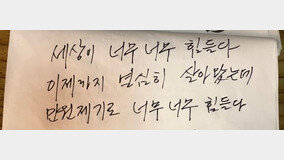 세상이 너무 너무 힘든다
이제까지 열심히 살아왔는데
만원제기로 너무 너무 힘든다